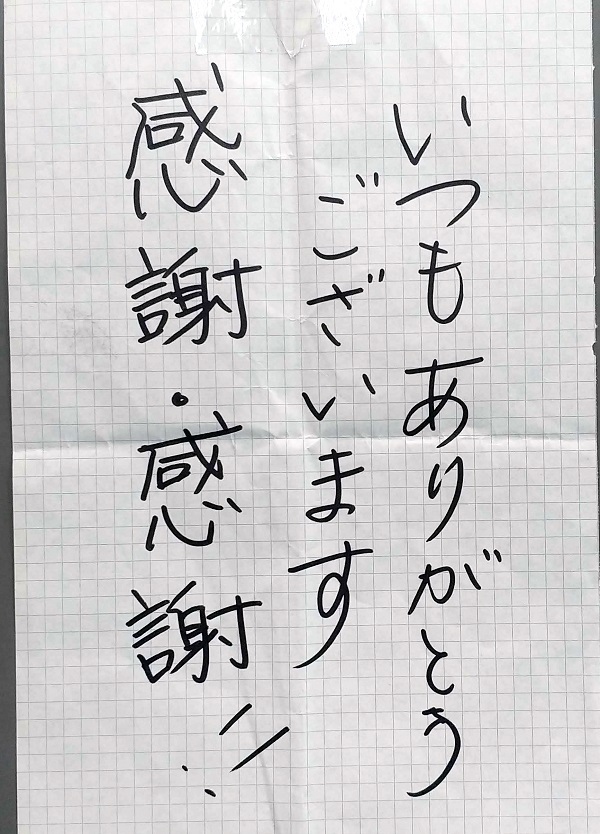 いつもありがとう
ございます
感謝・感謝!!